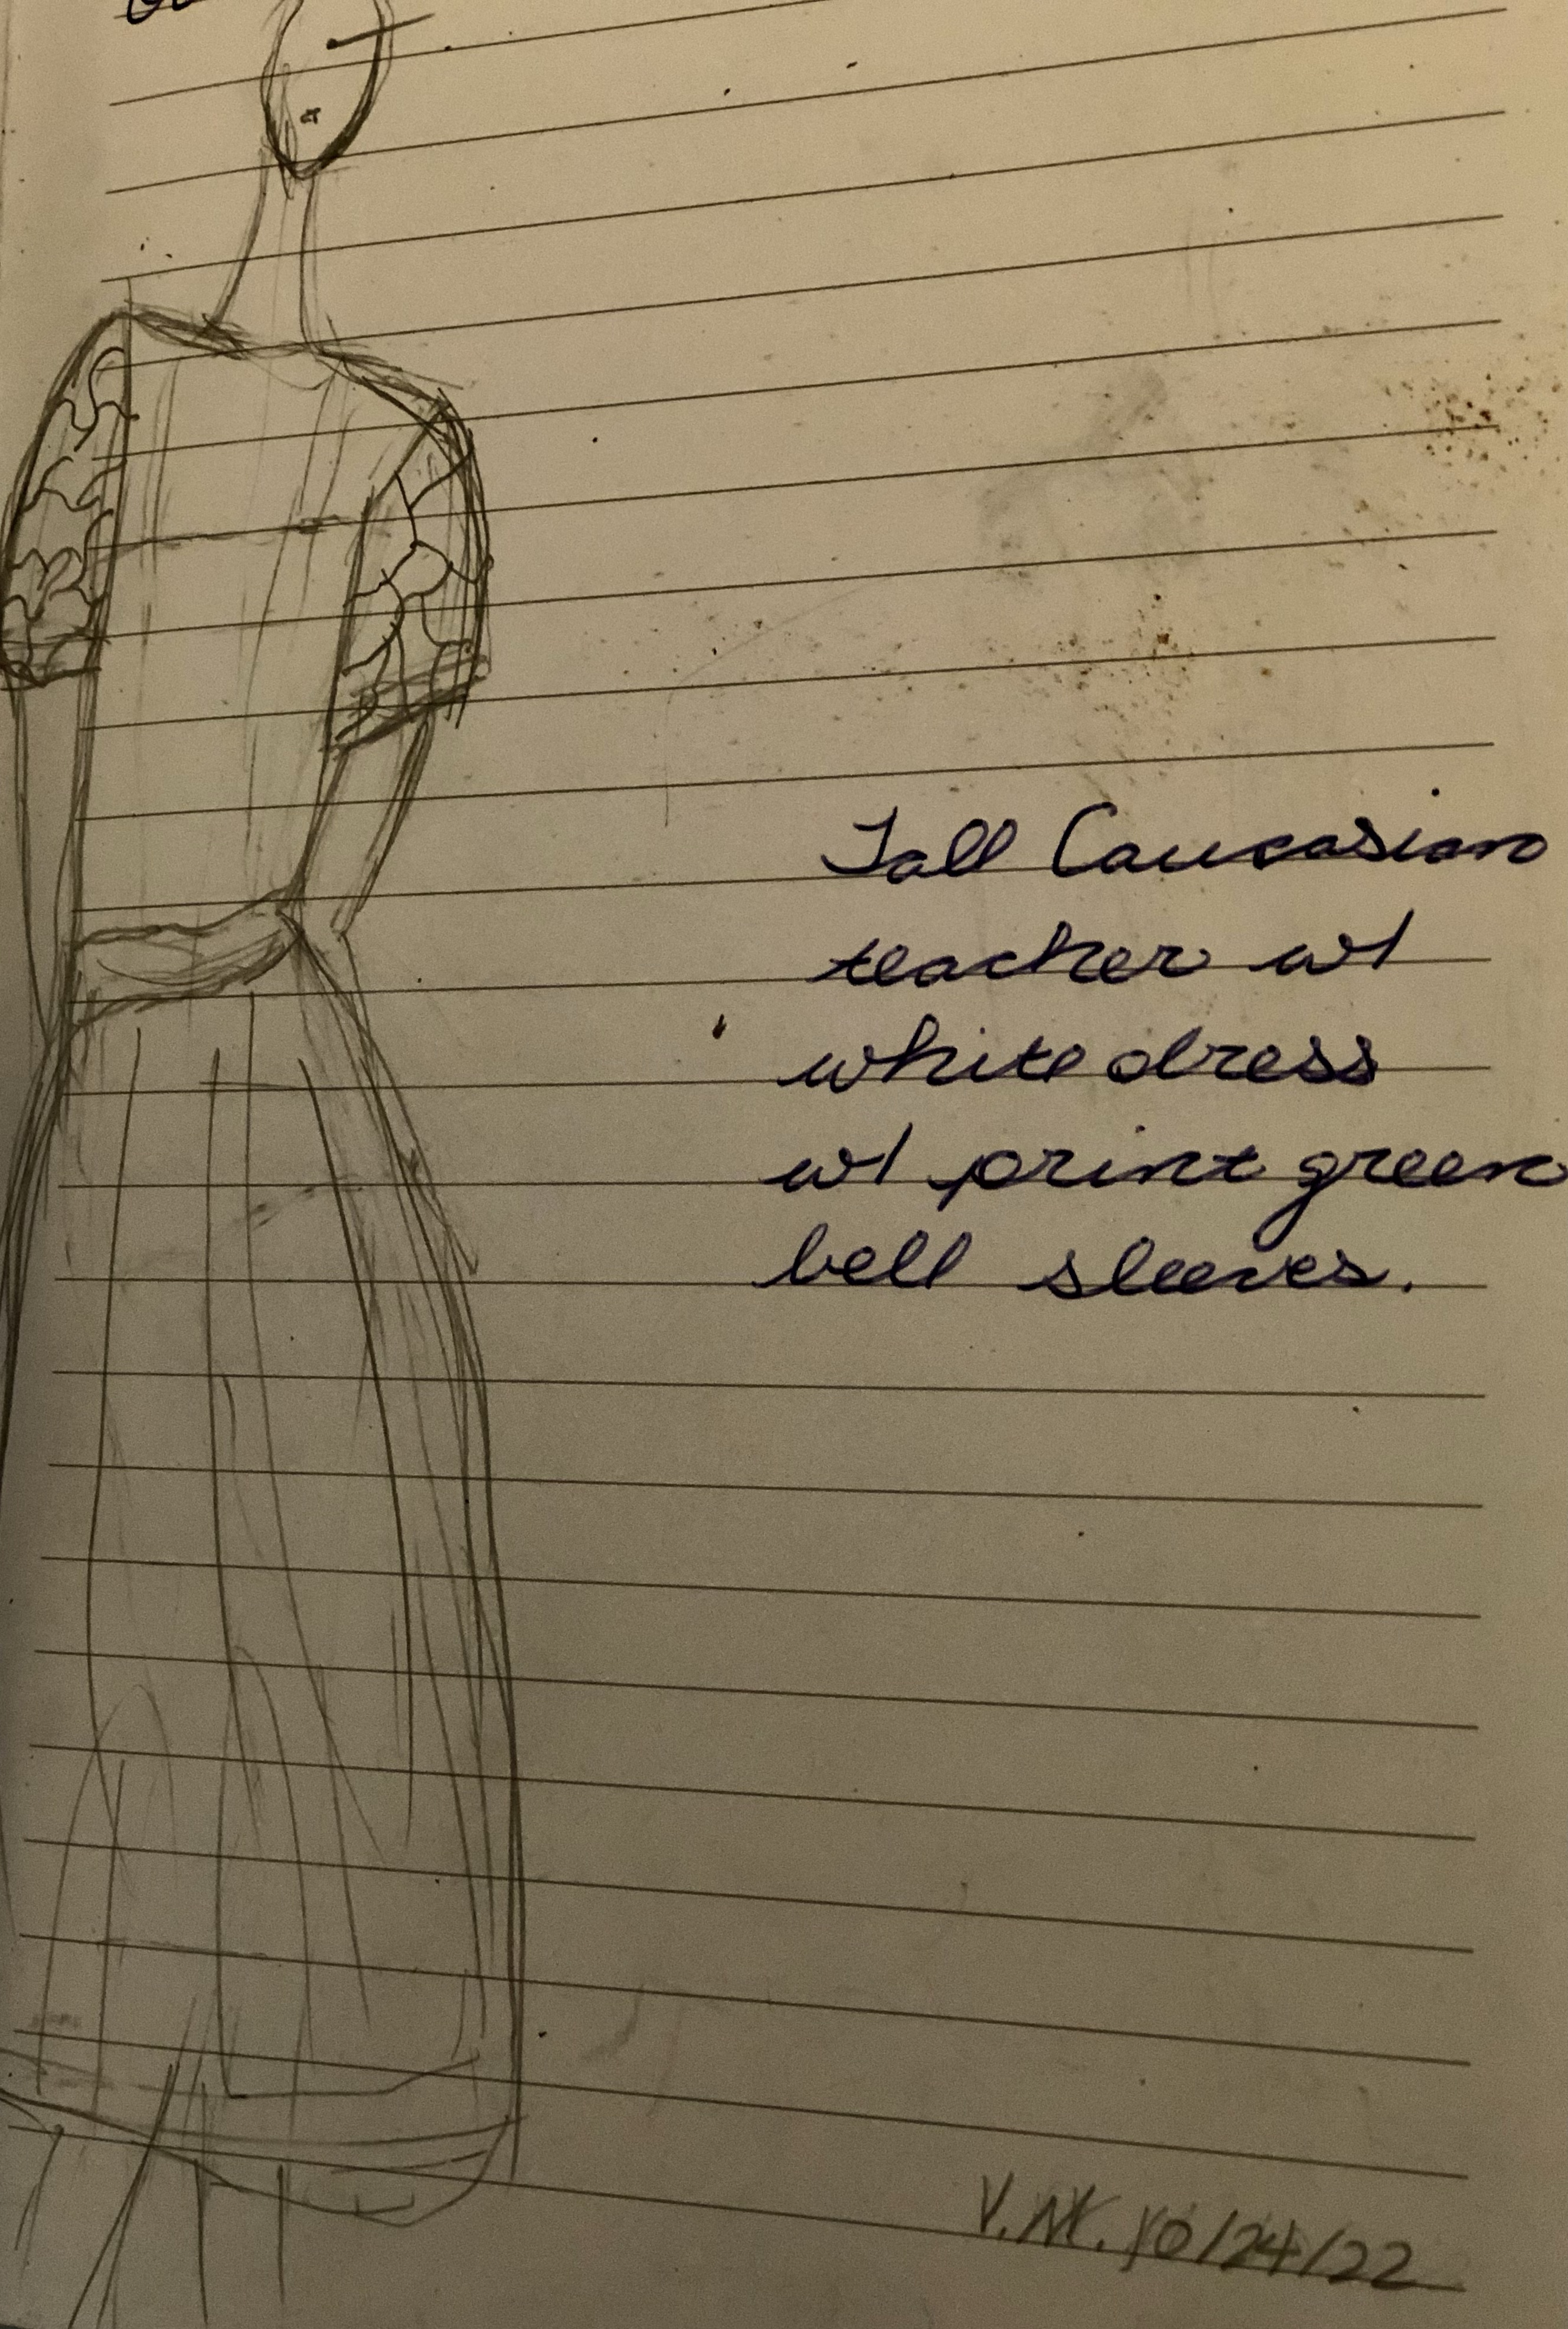 Tall Caucasian
teacher w/
white dress
w/ print green
bell sleeves.
V.M. 10/24/22